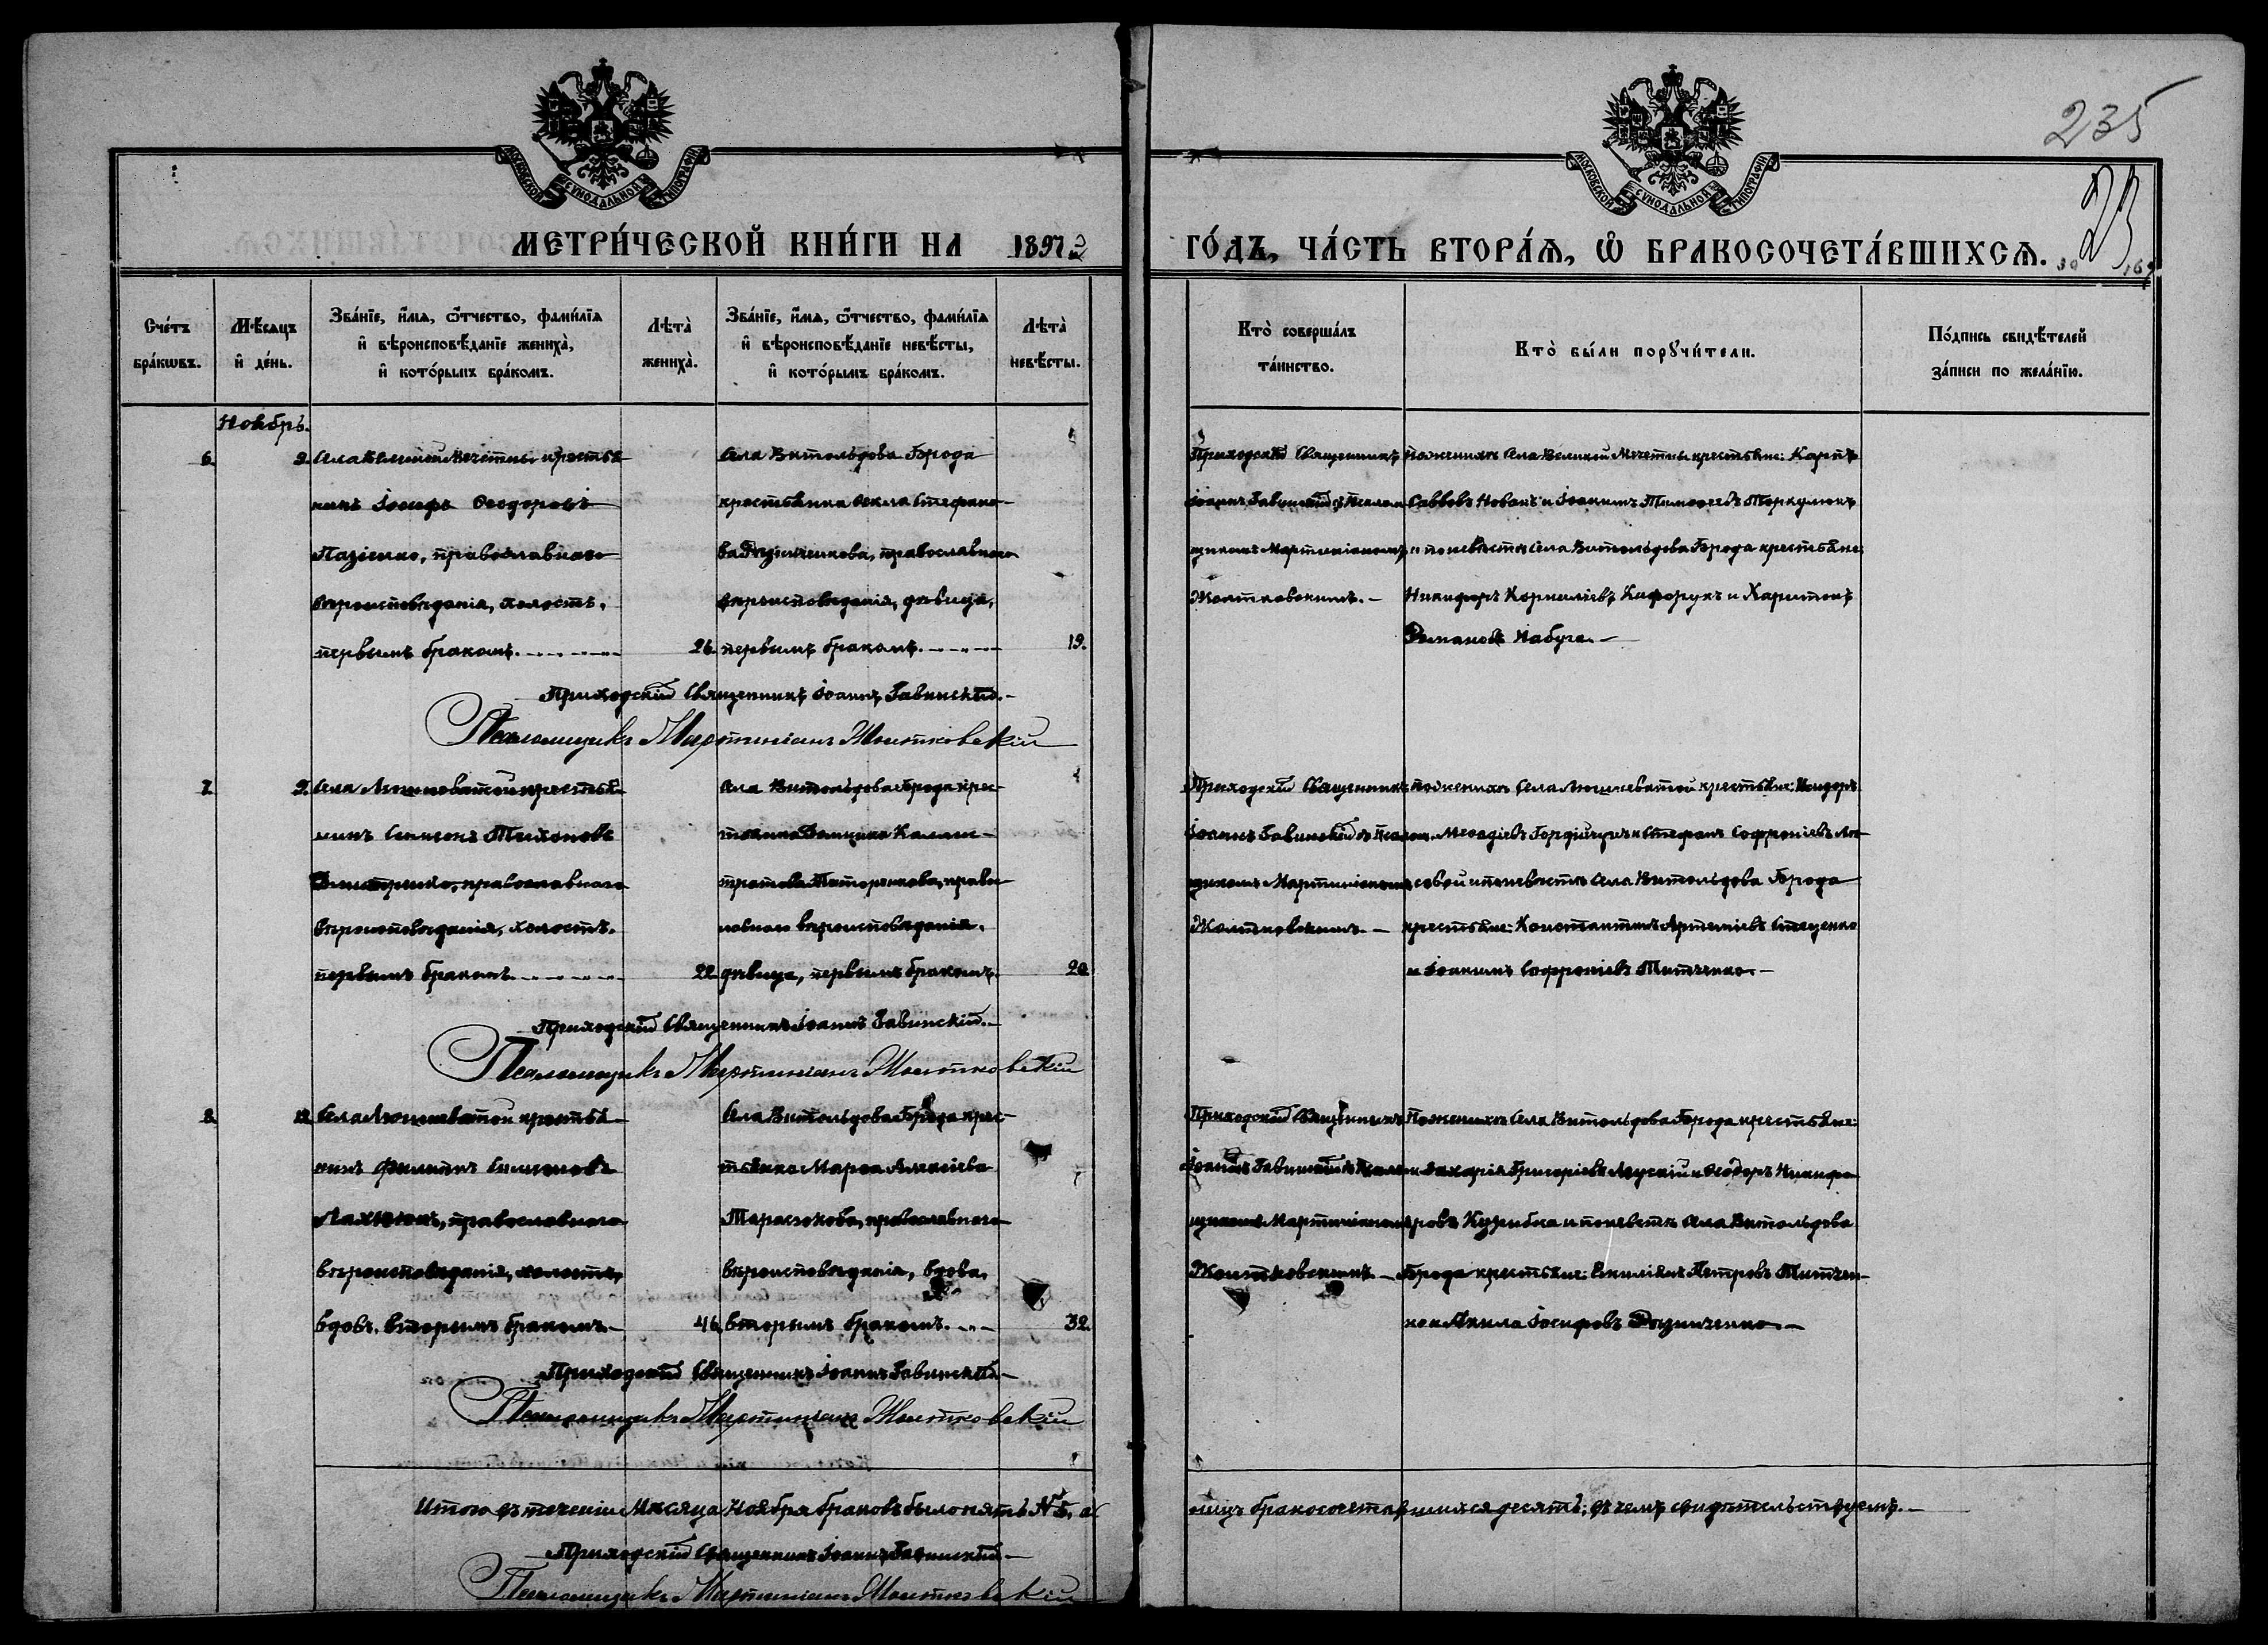 235
23
МОСКОВСКОЙ СѴНОДАЛЬНОЙ ТИПОГРАФІИ
МОСКОВСКОЙ СѴНОДАЛЬНОЙ ТИПОГРАФІИ
МЕТРИ́ЧЕСКОЙ КНИ́ГИ НА 1897
ГО́ДЪ, ЧА́СТЬ ВТОРА́Ѧ, Ѽ БРАКОСОЧЕТА́ВШИХСѦ.
Сче́тъ бра́кѡвъ.
Мѣ́сяцъ и҆ де́нь.
Зва́нїе, и҆́мѧ, ѻ҆́тчество, фами́лїѧ
и҆ вѣроисповѣ́данїе жениха̀,
и҆ кото́рымъ бра́комъ.
Лѣта̀ жениха̀.
Зва́нїе, и҆́мѧ, ѻ҆́тчество, фами́лїѧ
и҆ вѣроисповѣ́данїе невѣ́сты,
и҆ кото́рымъ бра́комъ.
Лѣта̀ невѣ́сты.
Кто̀ соверша́лъ та́инство.
Кто̀ бы́ли порꙋчи́тели.
По́дпись свидѣ́телей за́писи по жела́нїю.
Ноябрь.
6. 9.
Села Великой Мечетны крестья
нинъ Іосифъ Ѳеодоровъ
Пазіенко, православнаго
вѣроисповѣданія, холостъ,
первымъ бракомъ. 26.
Села Витольдова Брода
крестьянка Ѳекла Стефано-
ва Дозинченкова, православнаго
вѣроисповѣданія, дѣвица,
первымъ бракомъ. 19.
Приходскій Священникъ
Іоаннъ Гавинскій съ Псалом
щикомъ Мартиніаномъ
Жолтковскимъ.
По женихѣ Села Великой Мечетны крестьяне: Карпъ
Саввовъ Новакъ и Іоакимъ Тимоѳеевъ
и по невѣстѣ Села Витольдова Брода крестьяне:
Никифоръ Корниліевъ и Харитонъ
Романовъ Набуга.
Приходскій Священникъ Іоаннъ Гавинскій.
Псаломщикъ Мартиніанъ Жолтковскій
7. 9.
Села Люшневатой крестья
нинъ Симеонъ Тихоновъ
Дмитренко, православнаго
вѣроисповѣданія, холостъ,
первымъ бракомъ 22.
Села Витольдова Брода крес-
тьянка Домникія Калис-
тратова Титоренкова, правос
лавнаго вѣроисповѣданія,
дѣвица, первымъ бракомъ. 20.
Приходскій Священникъ
Іоаннъ Гавинскій съ Псалом
щикомъ Мартиніаномъ
Жолтковскимъ.
По женихѣ Села Люшневатой крестьяне: Исидоръ
Меѳодіевъ и Стефанъ Софроніевъ
и по невѣстѣ Села Витольдова Брода
крестьяне: Константинъ Артеміевъ Стеценко
и Іоакимъ Софроніевъ Титченко.
Приходскій Священникъ Іоаннъ Гавинскій.
Псаломщикъ Мартиніанъ Жолтковскій
8. 12.
Села Люшневатой крестья
нинъ Филиппъ Симеоновъ
православнаго
вѣроисповѣданія,
вдовъ, вторымъ бракомъ. 46.
Села Витольдова Брода крес-
тьянка Марѳа Алексіева
Тарасюкова, православнаго
вѣроисповѣданія, вдова,
вторымъ бракомъ. 32.
Приходскій Священникъ
Іоаннъ Гавинскій съ Псалом
щикомъ Мартиніаномъ
Жолтковскимъ.
По женихѣ Села Витольдова Брода крестьяне:
Захарія Григоріевъ и Ѳеодоръ Никифо
ровъ и по невѣстѣ Села Витольдова
Брода крестьяне: Емиліанъ Петровъ Титчен-
ко и Акила Іосифовъ Дозинченко.
Приходскій Священникъ Іоаннъ Гавинскій
Псаломщикъ Мартиніанъ Жолтковскій
Итого въ теченіи Мѣсяца Ноября браковъ было пять № 5, а
лицъ бракосочетавшихся десять; въ чемъ свидѣтельствуемъ.
Приходскій Священникъ Іоаннъ Гавинскій
Псаломщикъ Мартиніанъ Жолтковскій